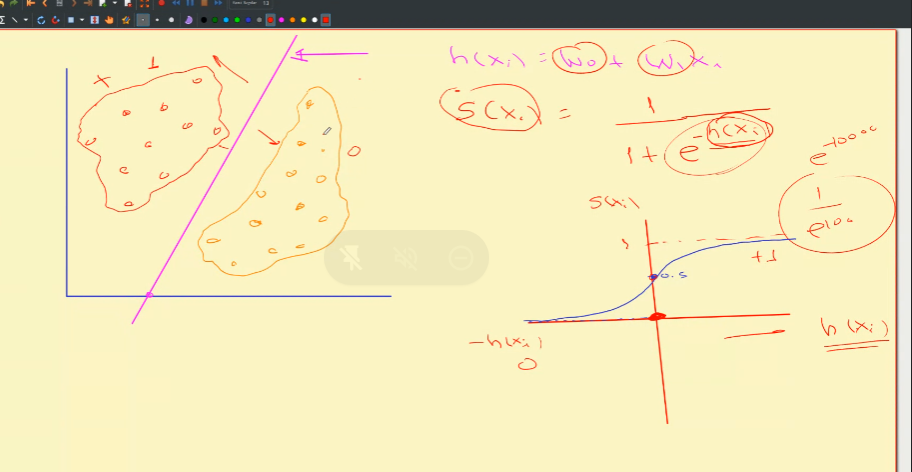 + 1
0
h(xi) = w0 + w1xi
S(xi) = 1
1 + e^-h(xi)
e^-1000
1
e^100
S(xi)
1
+1
0.5
-h(xi)
h(xi)
0